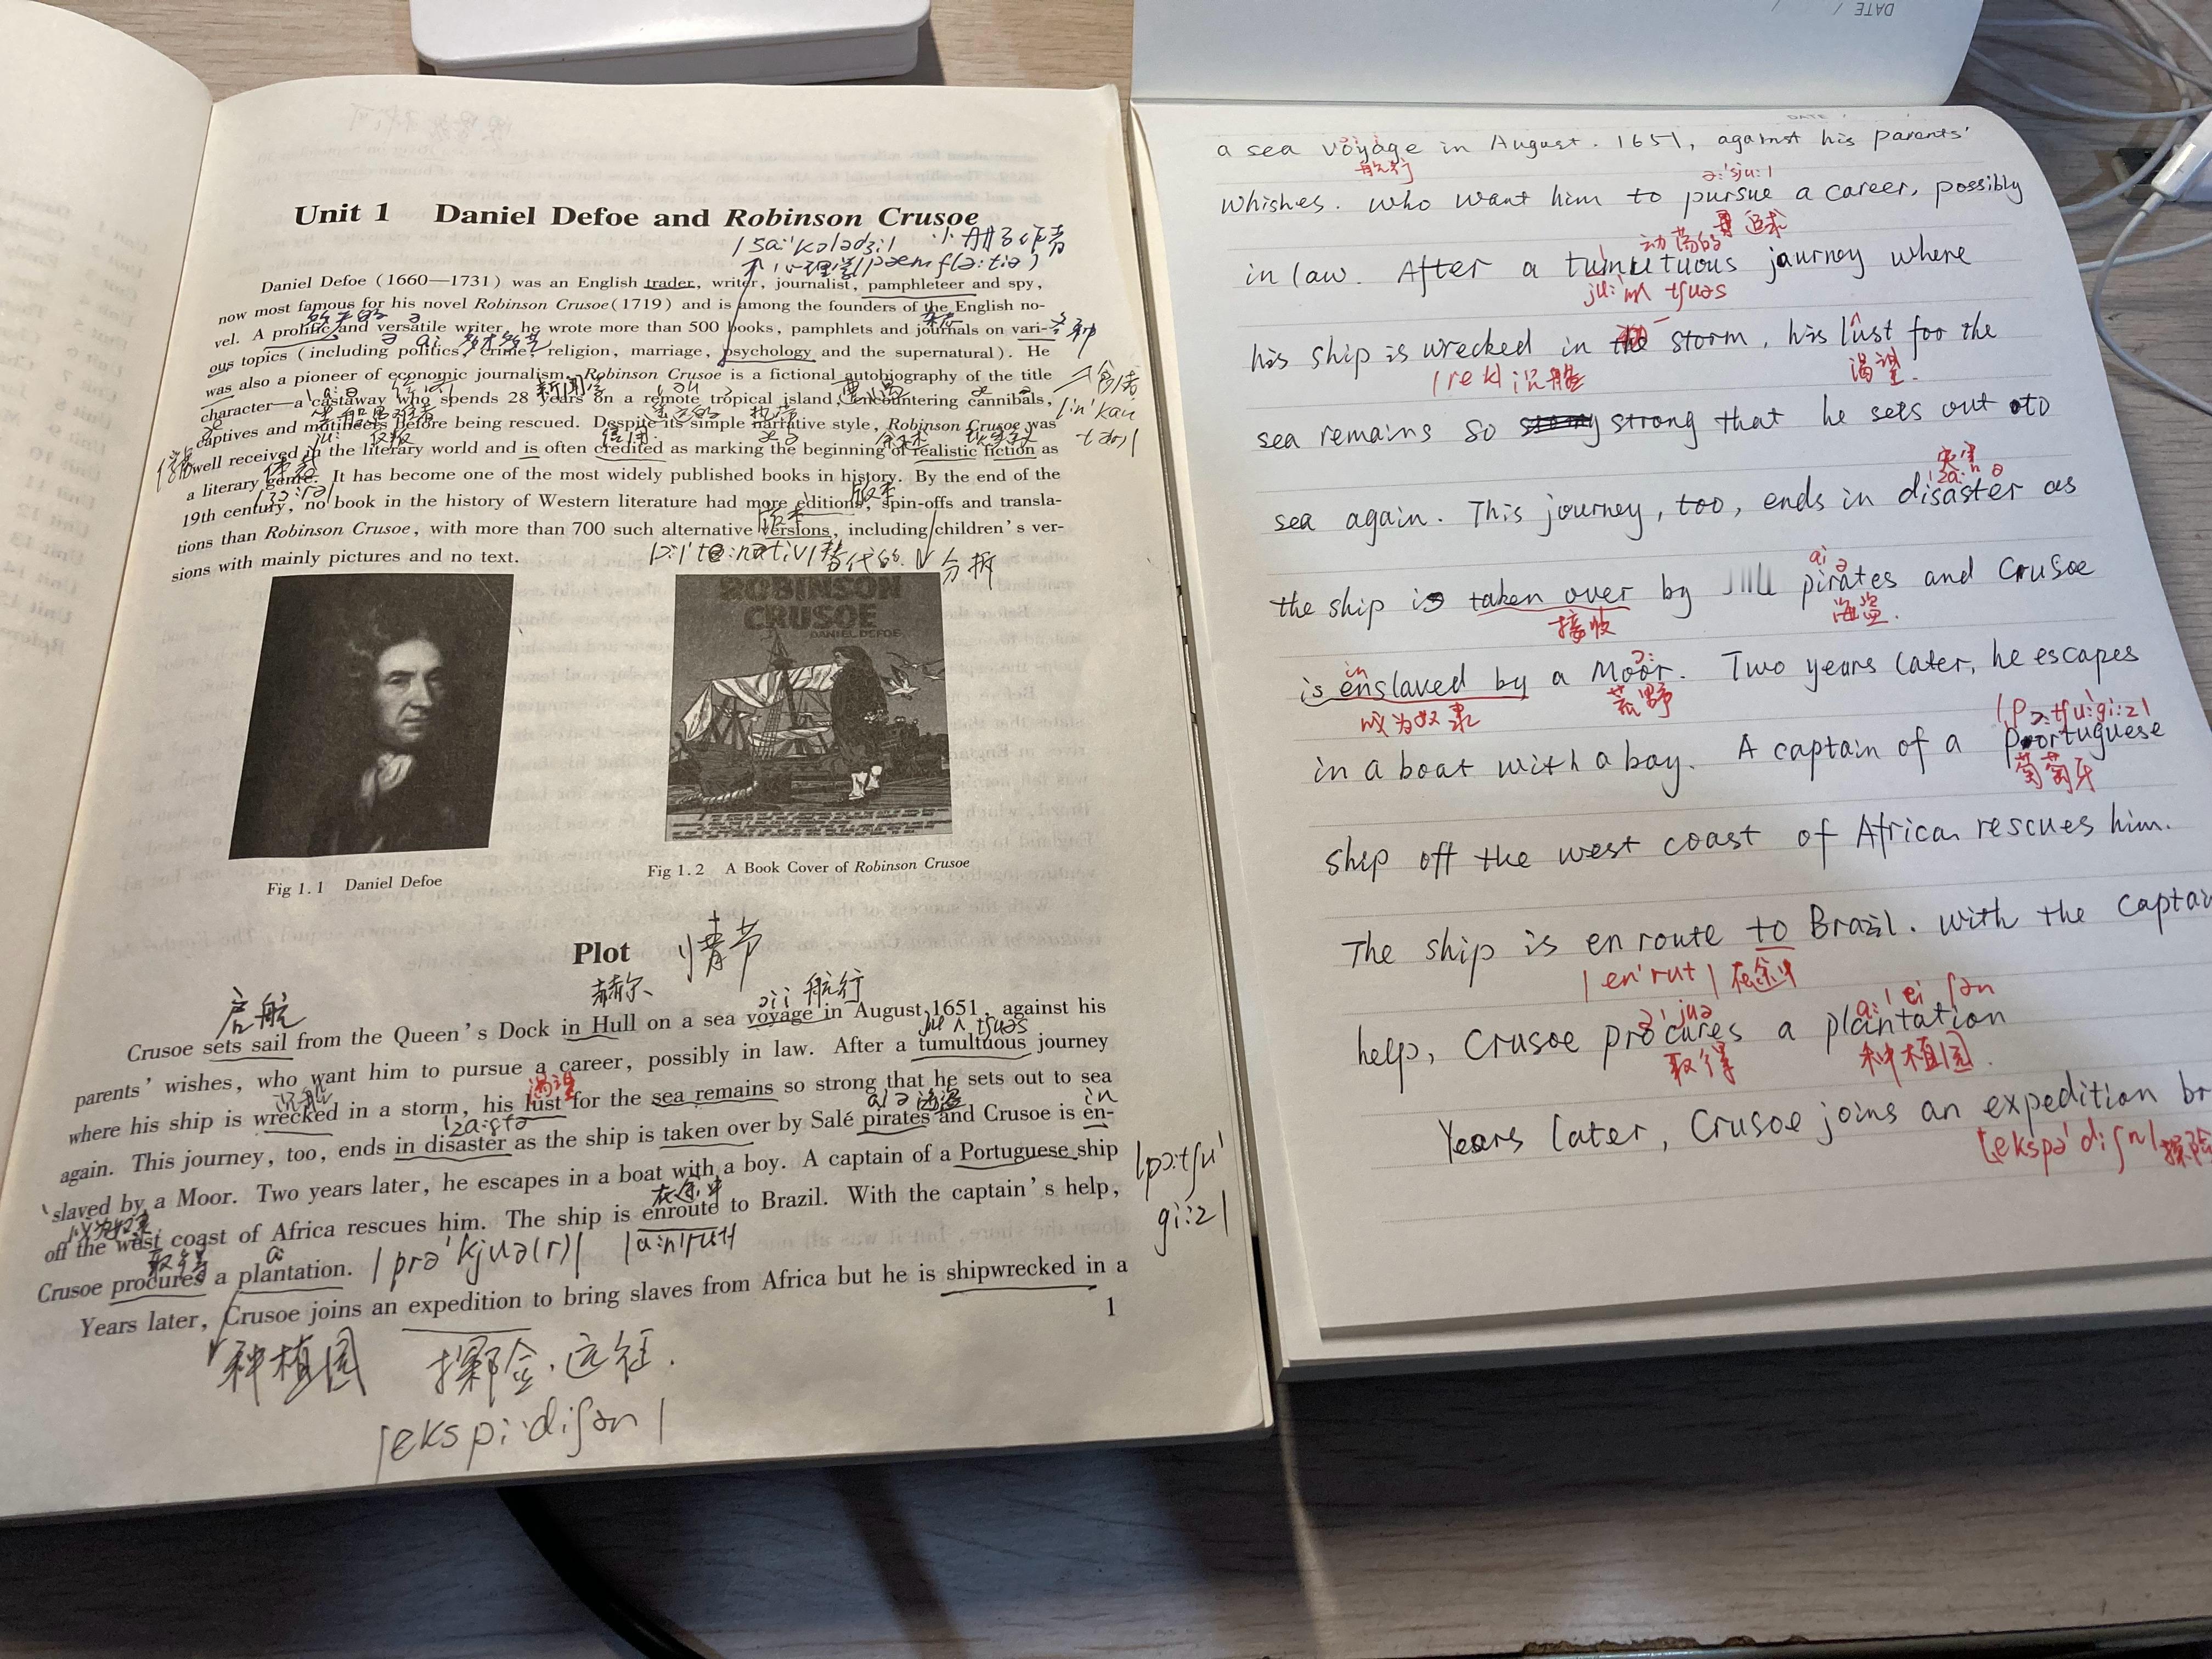 Unit 1 Daniel Defoe and Robinson Crusoe
/sai'kɔlədʒi/ 小册子作者
心理学
Daniel Defoe (1660—1731) was an English trader, writer, journalist, pamphleteer and spy,
now most famous for his novel Robinson Crusoe(1719) and is among the founders of the English no-
vel. A prolific and versatile writer, he wrote more than 500 books, pamphlets and journals on vari-
ous topics (including politics, crime, religion, marriage, psychology and the supernatural). He
was also a pioneer of economic journalism. Robinson Crusoe is a fictional autobiography of the title
character—a castaway who spends 28 years on a remote tropical island, encountering cannibals,
captives and mutineers before being rescued. Despite its simple narrative style, Robinson Crusoe was
well received in the literary world and is often credited as marking the beginning of realistic fiction as
a literary genre. It has become one of the most widely published books in history. By the end of the
19th century, no book in the history of Western literature had more editions, spin-offs and transla-
tions than Robinson Crusoe, with more than 700 such alternative versions, including children's ver-
sions with mainly pictures and no text.
替代的 分拆
ROBINSON
CRUSOE
DANIEL DEFOE
Fig 1.1 Daniel Defoe
Fig 1.2 A Book Cover of Robinson Crusoe
Plot 情节
启航 赫尔 ɔii 航行
Crusoe sets sail from the Queen's Dock in Hull on a sea voyage in August 1651, against his
parents' wishes, who want him to pursue a career, possibly in law. After a tumultuous journey
渴望
where his ship is wrecked in a storm, his lust for the sea remains so strong that he sets out to sea
again. This journey, too, ends in disaster as the ship is taken over by Salé pirates and Crusoe is en-
slaved by a Moor. Two years later, he escapes in a boat with a boy. A captain of a Portuguese ship
在途中
off the west coast of Africa rescues him. The ship is enroute to Brazil. With the captain's help,
取得
Crusoe procures a plantation. /prə'kjuə(r)/
Years later, Crusoe joins an expedition to bring slaves from Africa but he is shipwrecked in a
1
种植园 远征.
/ekspi:diʃən/
/pɔ:tʃu'
gi:z/
DATE / /
a sea voyage in August. 1651, against his parents'
航行
whishes. who want him to pursue a career, possibly
动荡的 追求
in law. After a tumultuous journey where
his ship is wrecked in storm, his lust for the
/rekt/ 沉船 渴望.
sea remains so strong that he sets out to
灾害
sea again. This journey, too, ends in disaster as
ai ə
the ship is taken over by pirates and Crusoe
接收 海盗.
in ɔ:
is enslaved by a Moor. Two years later, he escapes
成为奴隶 荒野
/pɔ:tʃu'gi:z/
in a boat with a boy. A captain of a Portuguese
葡萄牙
ship off the west coast of African rescues him.
The ship is en route to Brazil. with the captain
/en'rut/ 在途中
help, Crusoe procures a plantation
取得 种植园.
Years later, Crusoe joins an expedition br
/ekspə'diʃn/ 探险